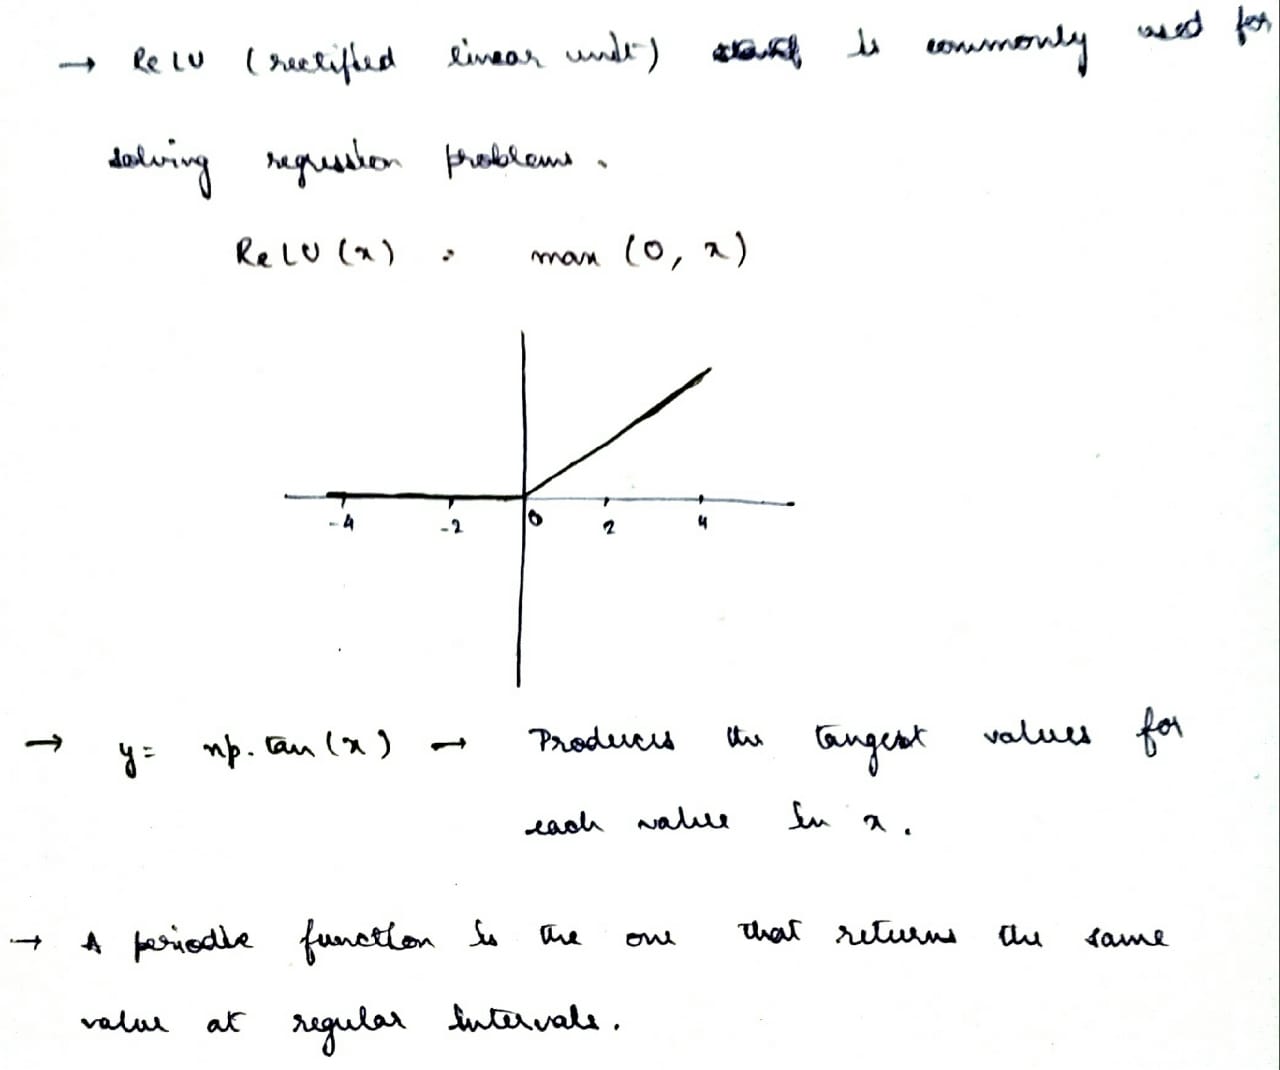 → ReLU (rectified linear unit) is commonly used for
solving regression problems.
ReLU(x) = max (0, x)
-4 -2 0 2 4
→ y = np.tan(x) → Produces the tangent values for
each value in x.
→ A periodic function is the one that returns the same
value at regular intervals.